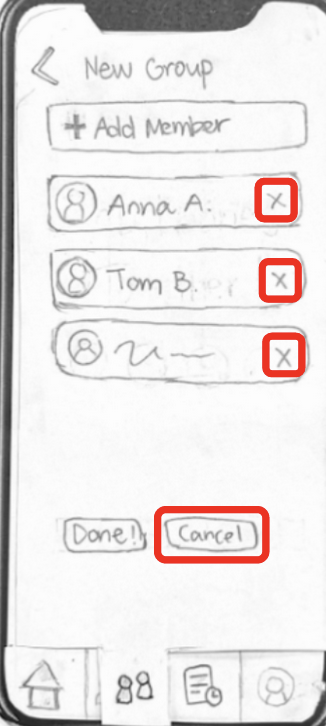 New Group
+ Add Member
Anna A.
X
Tom B.
X
X
Done! Cancel